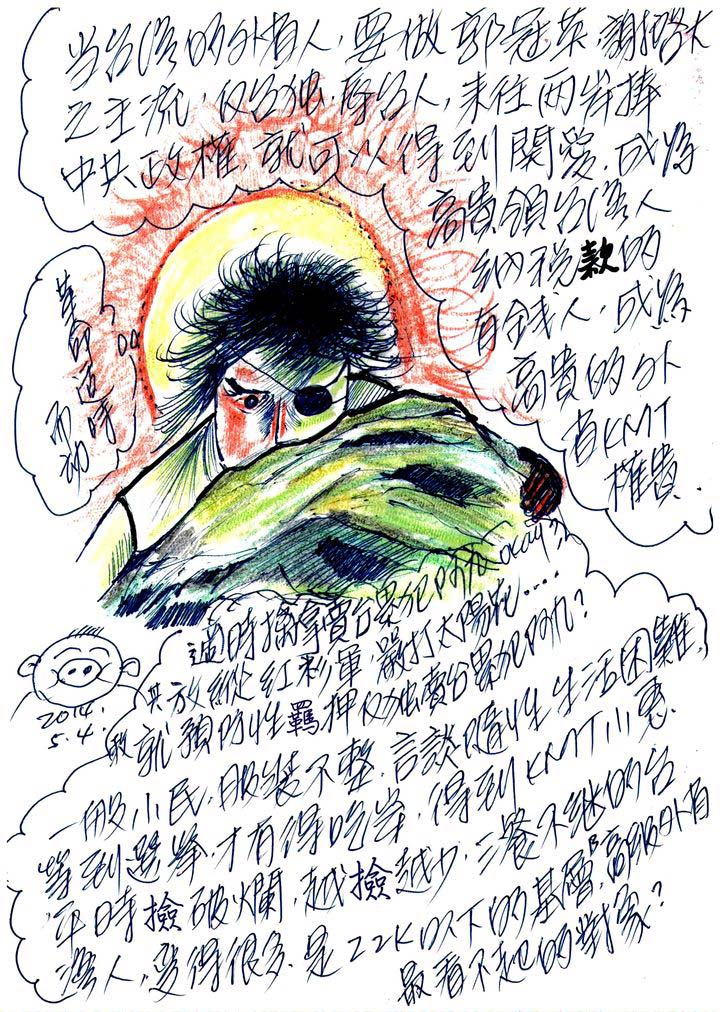 当台湾的外省人,要做郭冠英.謝啓大
之主流,仅台独.辱台人,来往两岸捧
中共政權,就可以得到関愛.成為
高貴領台湾人
納税款的
有钱人,成為
高貴的外
省KMT
權貴.
革命适時
而动
Okay?
過時擒拿賣台累犯阿九
共放縱紅衫軍,嚴打太陽花....
就預防性羈押仅独賣台累犯阿九?
一般小民,服裝不整.言談隨性生活困難,
等到選举,才有得吃岸,得到KMT小惠.
平時撿破爛,越撿越少.三餐不继的台
湾人,變得很多.是22K以下的基層,高級外省
最看不起的對象?
2014.
5.4.